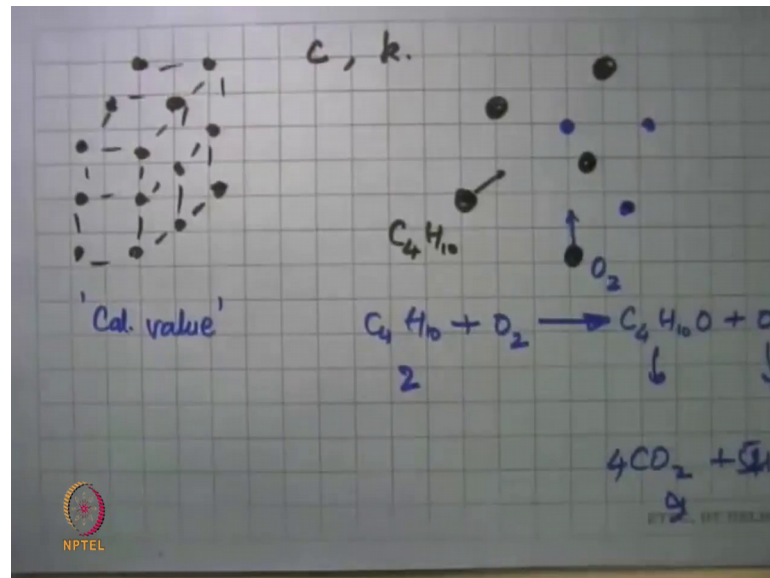 C, k.
C₄H₁₀
O₂
'Cal. value'
C₄ H₁₀ + O₂ → C₄ H₁₀ O + O
2
4CO₂ + 5
g
NPTEL